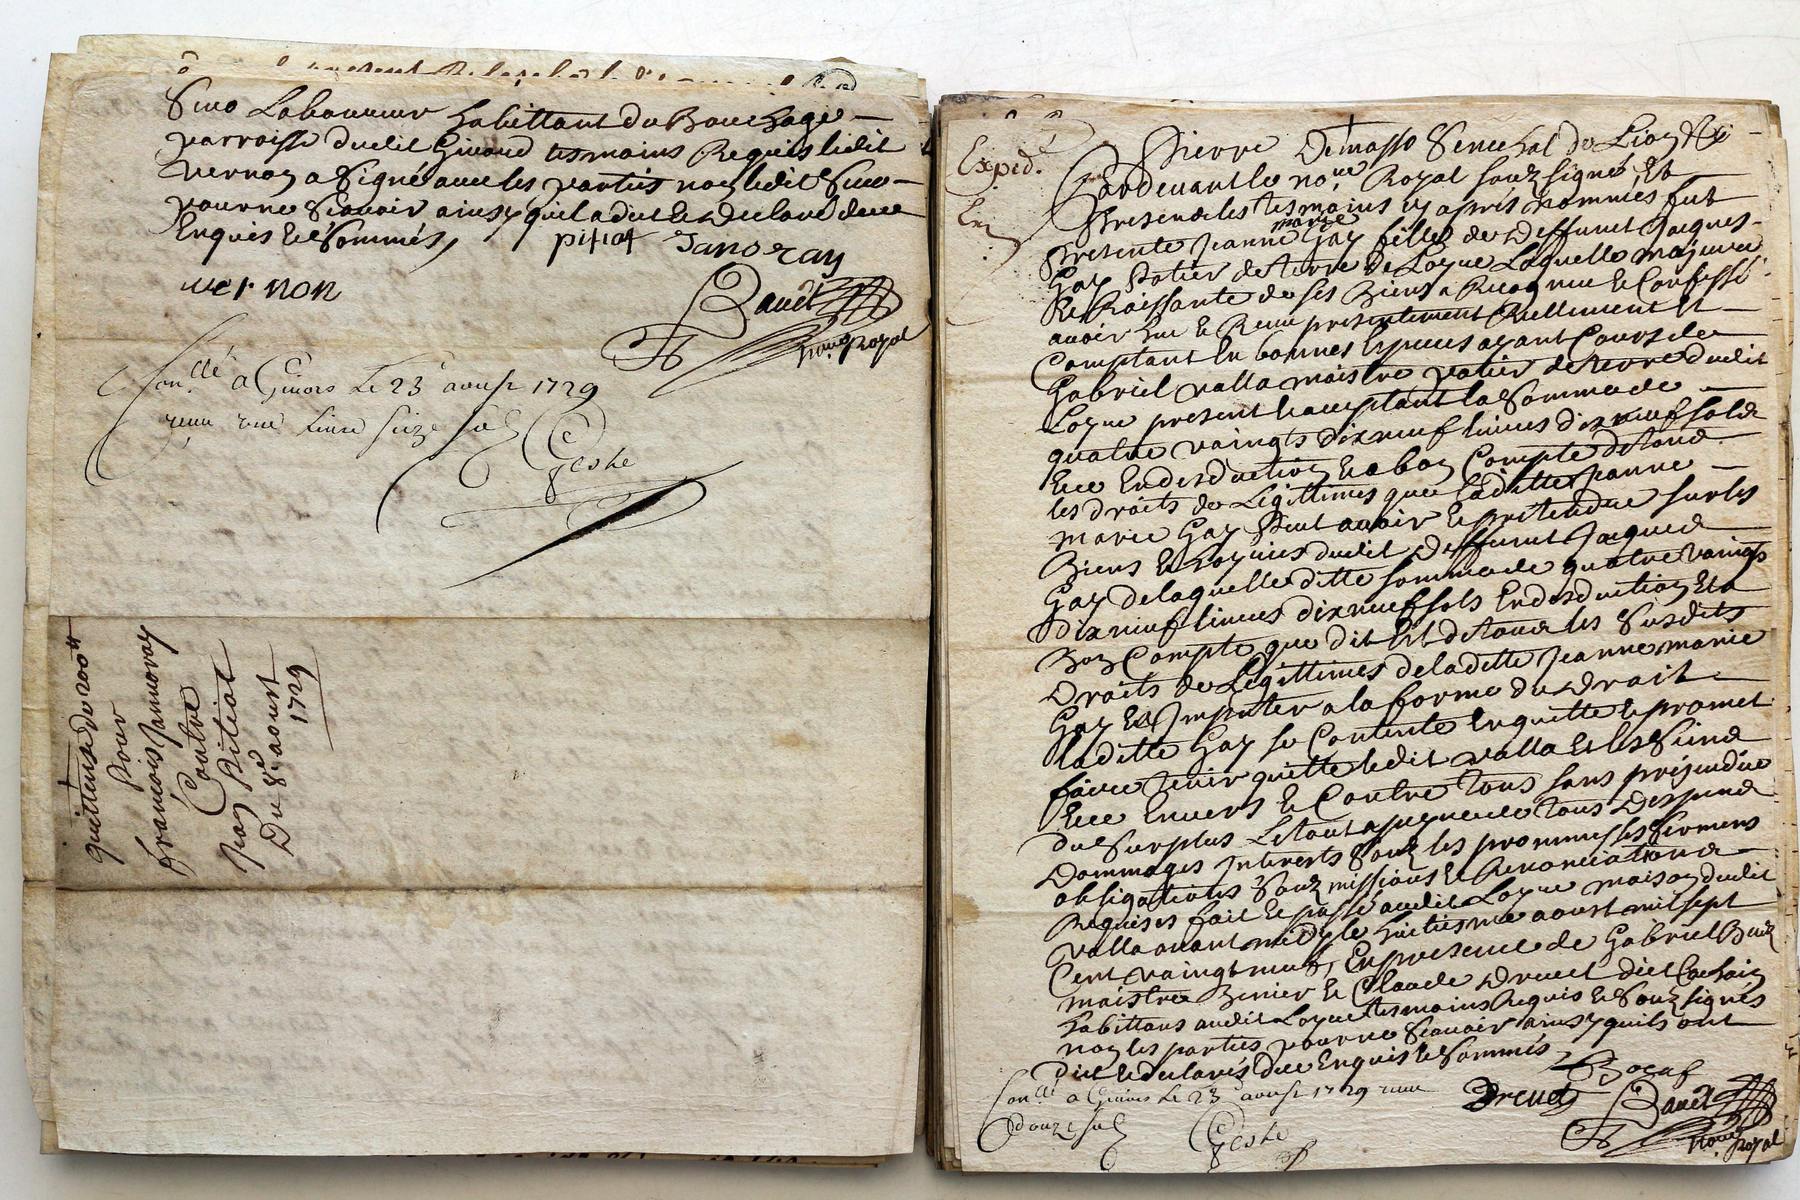 Simo Laboureur habittant du Bouchage
parroisse dudit Givord tesmoins Requis ledit
vernon a signé avec les parties non ledit Simo
pour ne scavoir ainsy quil a dit et declaré de ce
Enquis et sommés,
pitiot Janoray
vernon
Baudt
nore Royal
Conllé a Givors Le 23e aoust 1729
receu une livre seize sols
Geste
quittance de 200lt
pour
françois Jannoray
Contre
Jean Pitiot
Du 8e aoust
1729
Expéd.
Pierre Demasso Senechal de Lion
Pardevant le nore Royal souzsigné, Et
Presens les tesmoins cy apres nommés fut
presente Jeanne marie Gay fille de deffunct Jacques
Gay Potier de terre de Loyre Laquelle majeure
et Joissante de ses Biens a Recognue et Confessé
avoir heu et Receu presentement Reellement Et
Comptant En bonnes Especes ayant Cours de
Gabriel valla maistre potier de terre dudit
Loyre present et acceptant la somme de
quatre vaingts dixneuf livres dixneuf sols
Et ce En desduction et a bon Compte de tous
les droits de Légittimes que laditte Jeanne
marie Gay Peut avoir et pretendre sur les
Biens et hoyries dudit Deffunct Jacques
Gay de laquelle ditte somme de quatre vaings
dixneuf livres dixneuf sols En desduction Et a
Bon Compte que dit Est de tous les Susdits
Droits de Légittimes de laditte Jeanne marie
Gay Et Imputer a la forme du Droit
laditte Gay se Contente En quitte et promet
faire tenir quitte ledit valla et les siens
Et ce Envers et Contre tous sans préjudice
du Surplus Le tout a peyne de tous Despens
Dommages Interests Souz les prommesses sermens
obligations souzmissions et Renonciations
Requises fait et passé audit Loyre maison dudit
valla avant midy le huitiesme aoust mil sept
Cent vaingt neuf, En presence de Gabriel
maistre et Claude Drevet dict Cochain
habittans audit Loyre tesmoins Requis et souzsignés
non les parties pour ne scavoir ainsy quils ont
Dit et declarés de ce Enquis et sommés
Drevet
Baudt
nore Royal
Conllé a Givors Le 23e aoust 1729 receu
douze sols
Geste